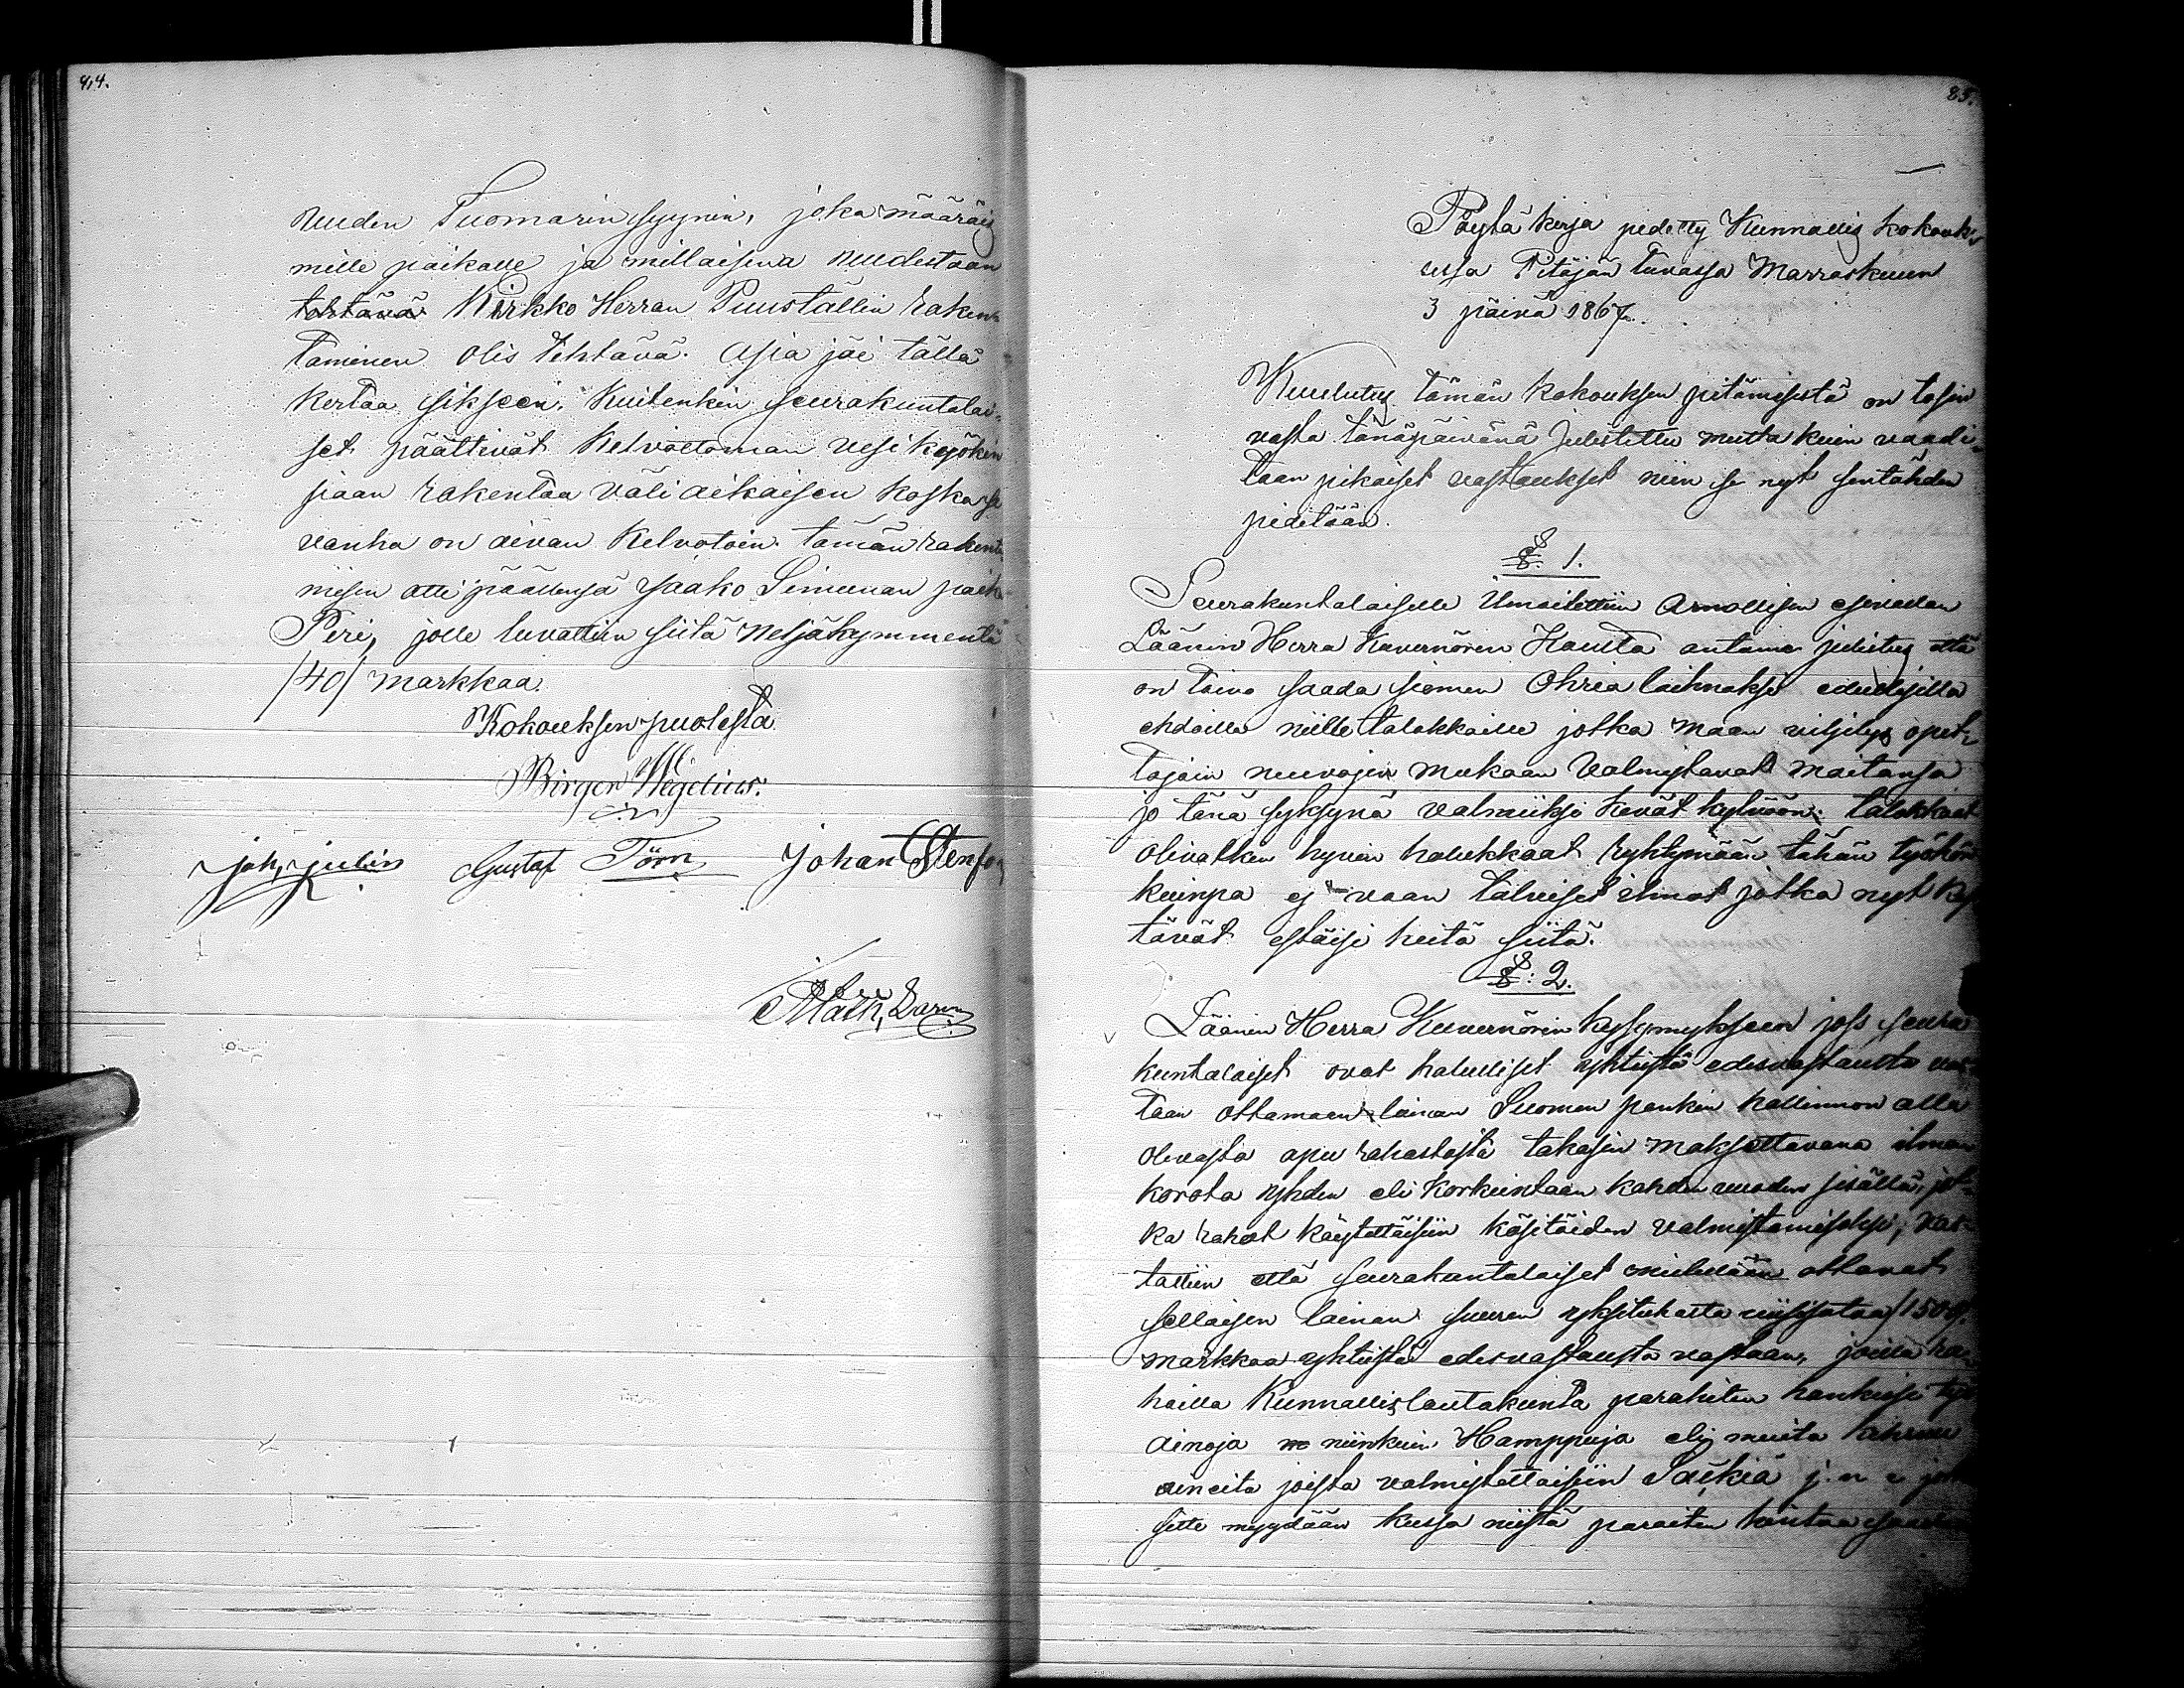 44.
uuden Tuomarin syynin, joka määräis
mille paikalle ja millaisena uudestaan
tehtävä Kirkko Herran Puuställin raken-
taminen olis tehtävä. Asia jäi tällä
kertaa sikseen. Kuitenkin seurakuntalai-
set päättivät kelvottoman vesi kyökin
siaan rakentaa väli aikaisen koska se
vanha on aivan kelvotoin. tämän rakenta
misen otti päällensä Jaako Simunan
Peri, jolle luvattiin siitä neljäkymmentä
/40/ markkaa.
Kokouksen puolesta
Birger Wegelius.
Joh, Julin Gustaf Törn Johan Stenfo
Math,
85.
Pöytä kirja pidetty Kunnallis kokouk-
sessa Pitäjän tuvassa Marraskuun
3 päivä 1867.
Kuulutus tämän kokouksen pitämisestä on tosin
vasta tänäpäivänä Julistettu mutta kuin vaadi-
taan pikaiset vastaukset niin se nyt sentähden
pidetään.
§. 1.
Seurakuntalaiselle ilmoitettiin Arvollisen esivallan
Läänin Herra Kuvernören Kautta antama julistus että
on toivo saada siemen Ohria laihnaksi edullisilla
ehdoilla niille talokkaille jotka maan viljelys opet-
tajain neuvojen mukaan Valmistavat maitansa
jo tänä syksynä valmiiksi kevät kylvöön. talokkaat
olivatkin hyvin halukkaat ryhtymään tähän työhön
kuinpa ej vaan talviset ilmat jotka nyt käy
tävät estäisi heitä siitä.
§: 2.
Läänin Herra Kuvernörin kysymykseen joss seura
kuntalaiset ovat halulliset yhteistä edesvastausta vas-
taan ottamaan lainan Suomen pankin hallinnon alla
olevasta apu rahastosta takasin maksettavana ilman
korota yhden eli korkeintaan kahden vuoden sisällä, jot-
ka rahat käytettäisiin käsitöiden valmistamiseksi; vas-
tattiin että seurakuntalaiset mielellään ottavat
sellaisen lainan suuren yksituhatta viisisataa /1500/
markkaa yhteistä edesvastausta vastaan, joilla ra-
hoilla Kunnallislautakunta parahiten hankkisi työ
ainoja niinkuin Hamppuja eli muita
aineita joista valmistettaisiin Säkkiä j. n. e
sitte myydään kussa niistä paraiten hintaa